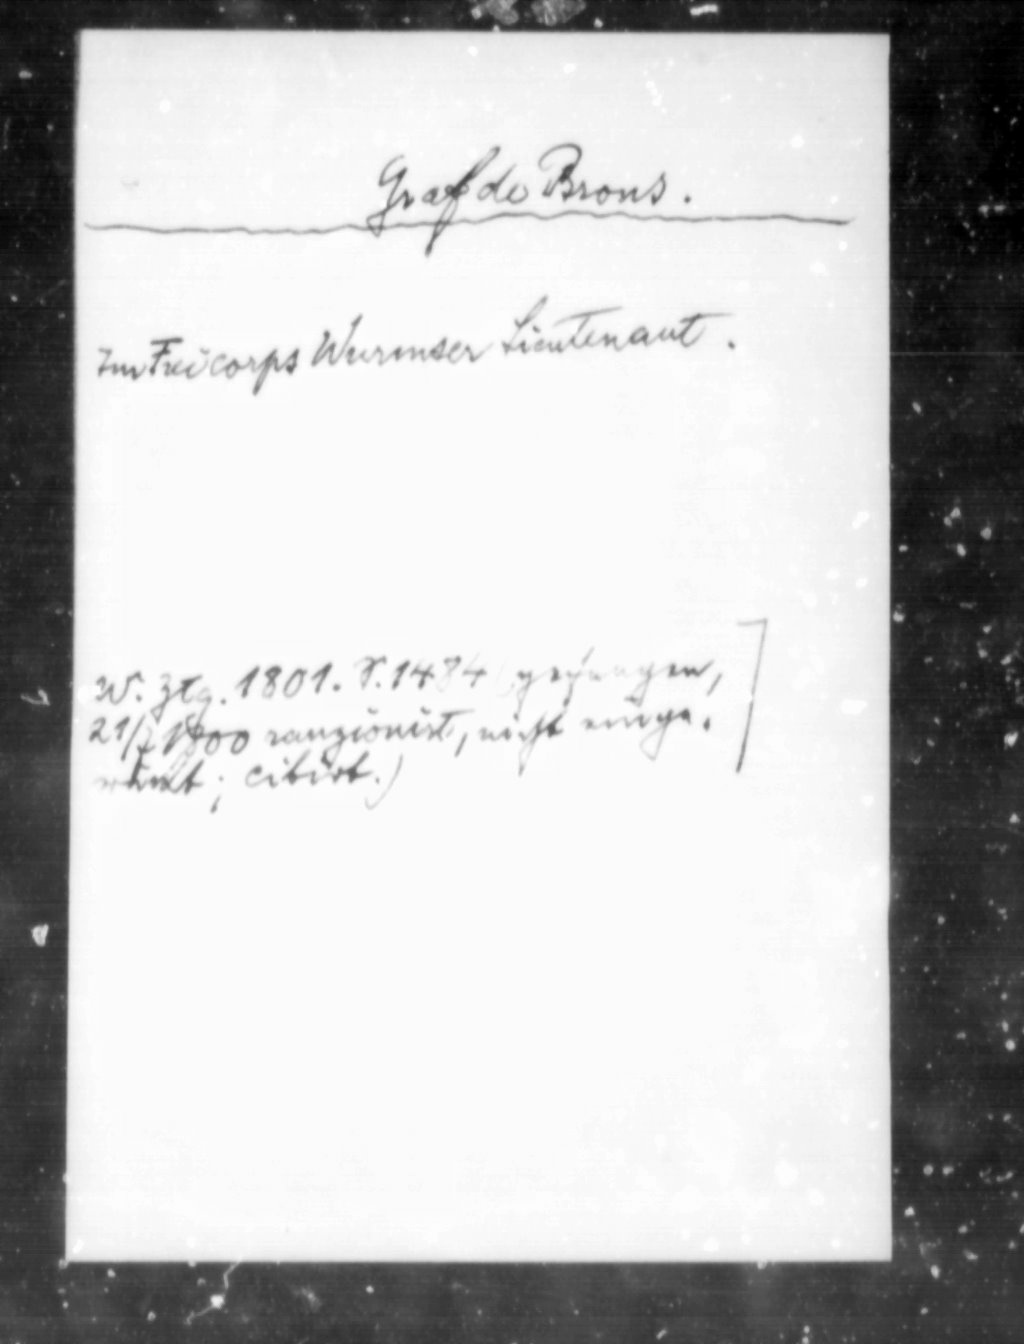 Graf de Brons.
Im Freicorps Wurmser Lieutenant.
W. Ztg. 1801. S. 1484 (gefangen,
21/7 1800 ranzionirt, nicht einge.
rückt; citirt.)